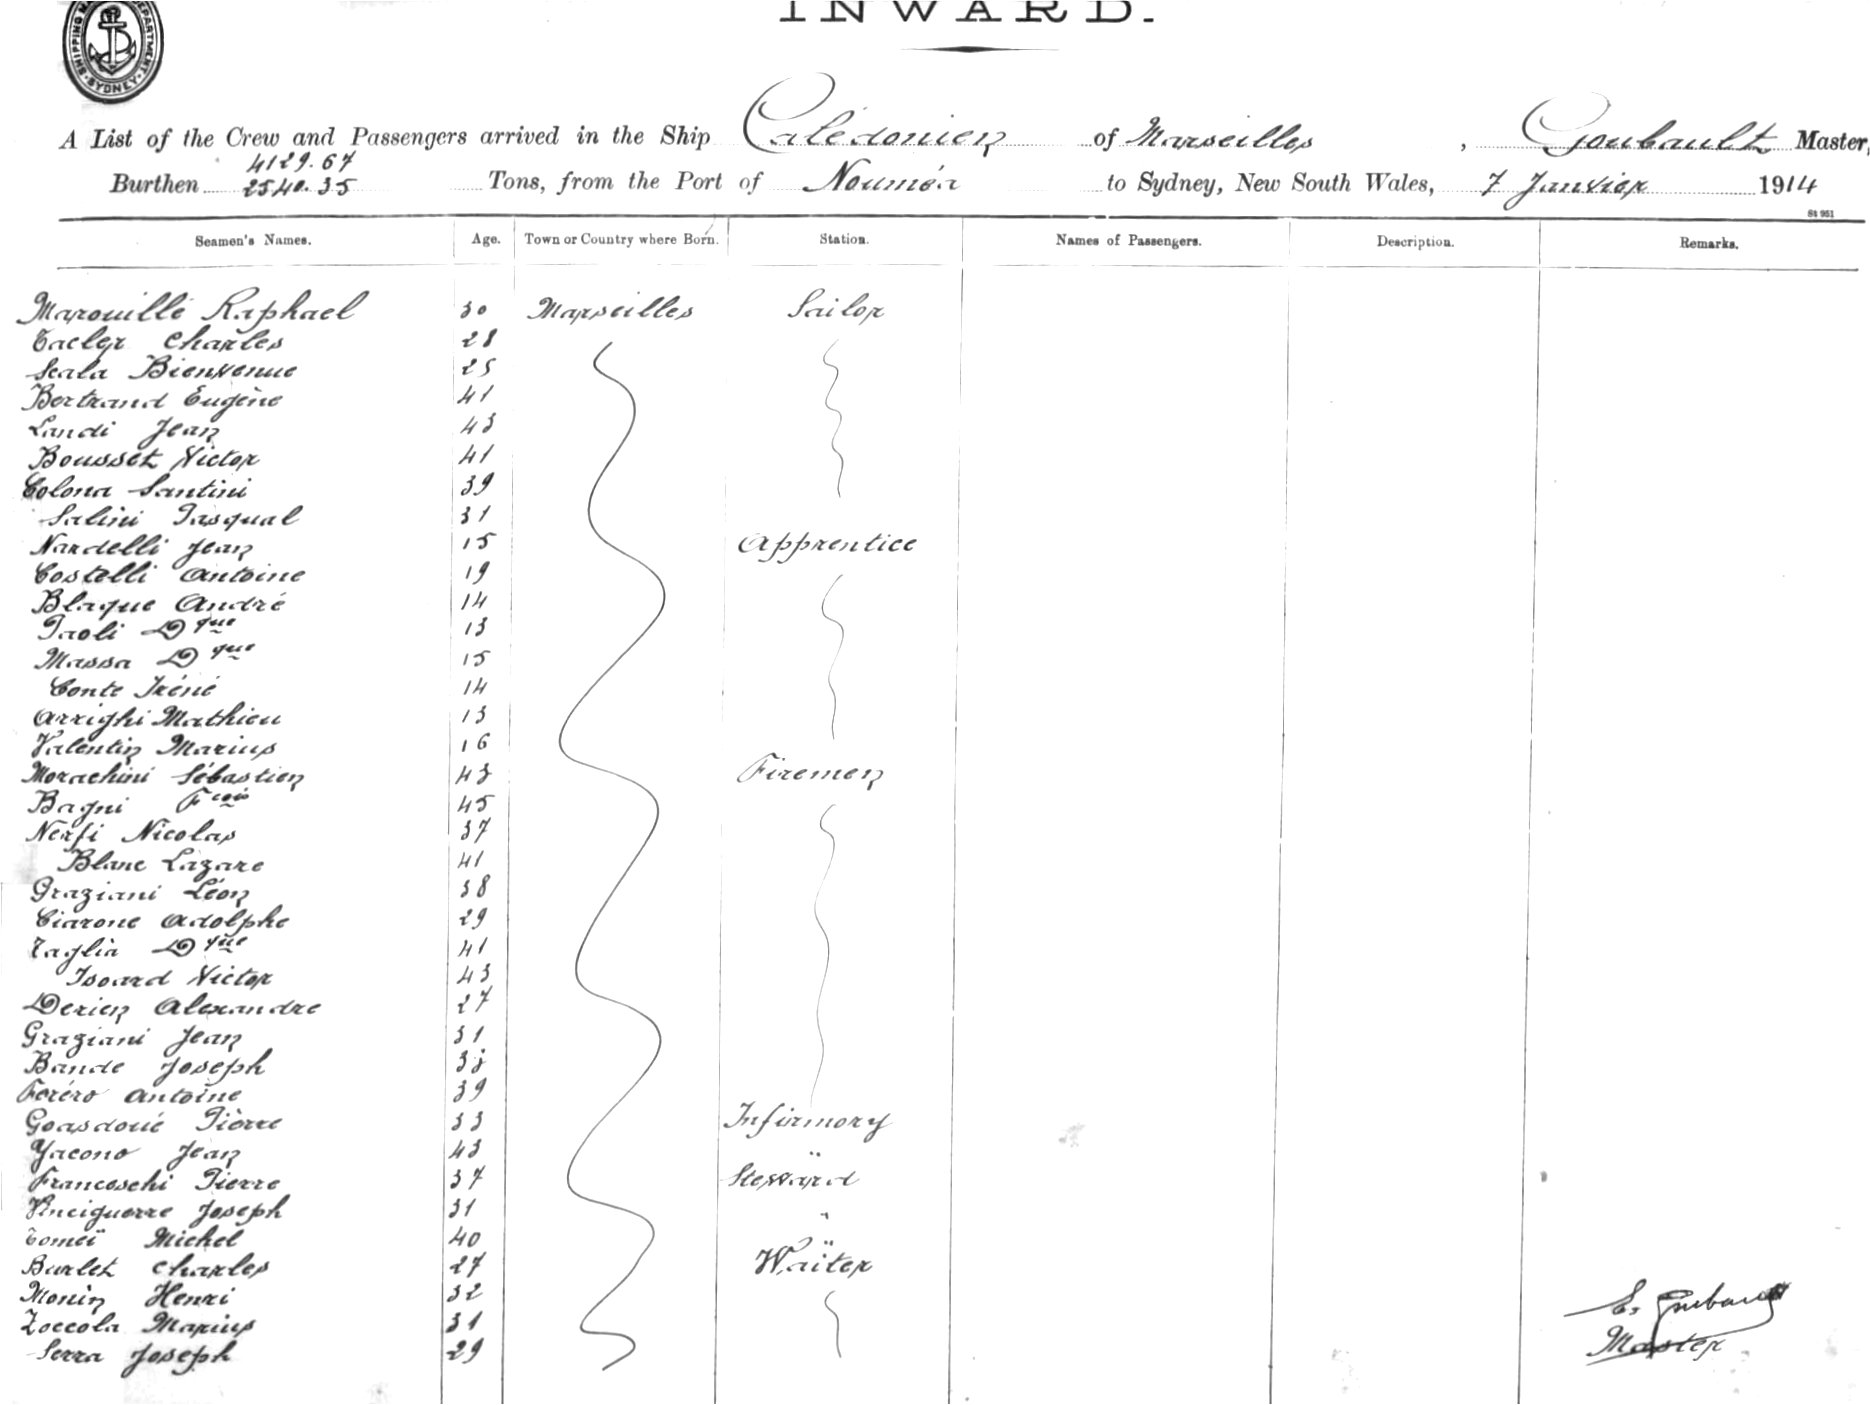 INWARD.
SHIPPING DEPARTMENT SYDNEY
A List of the Crew and Passengers arrived in the Ship Calédonien of Marseilles, Goubault Master,
4129.67
Burthen 2540.35 Tons, from the Port of Nouméa to Sydney, New South Wales, 7 Janvier 1914
St 951
Seamen's Names. Age. Town or Country where Born. Station. Names of Passengers. Description. Remarks.
Marouillé Raphael 30 Marseilles Sailor
Charles 28
Scala Bienvenue 25
Bertrand Eugène 41
Landi Jean 43
Bousset Victor 41
Colona Santini 39
Salini Pasqual 31
Nardelli Jean 15 Apprentice
Costelli Antoine 19
Blaque André 14
Paoli Dque 13
Massa Dque 15
Conte Iréné 14
Arrighi Mathieu 13
Valentin Marius 16
Morachini Sébastien 43 Firemen
Bagni Fcois 45
Nerfi Nicolas 37
Blanc Lazare 41
Graziani Léon 38
Ciarone Adolphe 29
Taglia Dque 41
Isoard Victor 43
Derien Alexandre 27
Graziani Jean 31
Bande Joseph
Foréro Antoine 39
Goasdoué Pierre 33 Infirmory
Yacono Jean 43 "
Franceschi Pierre 37 Steward
Vinciguerre Joseph 31 "
Tomeï Michel 40 "
Burlet Charles 27 Waiter
Monin Henri 32
Zoccola Marius 31
Serra Joseph 29
E. Goubault
Master